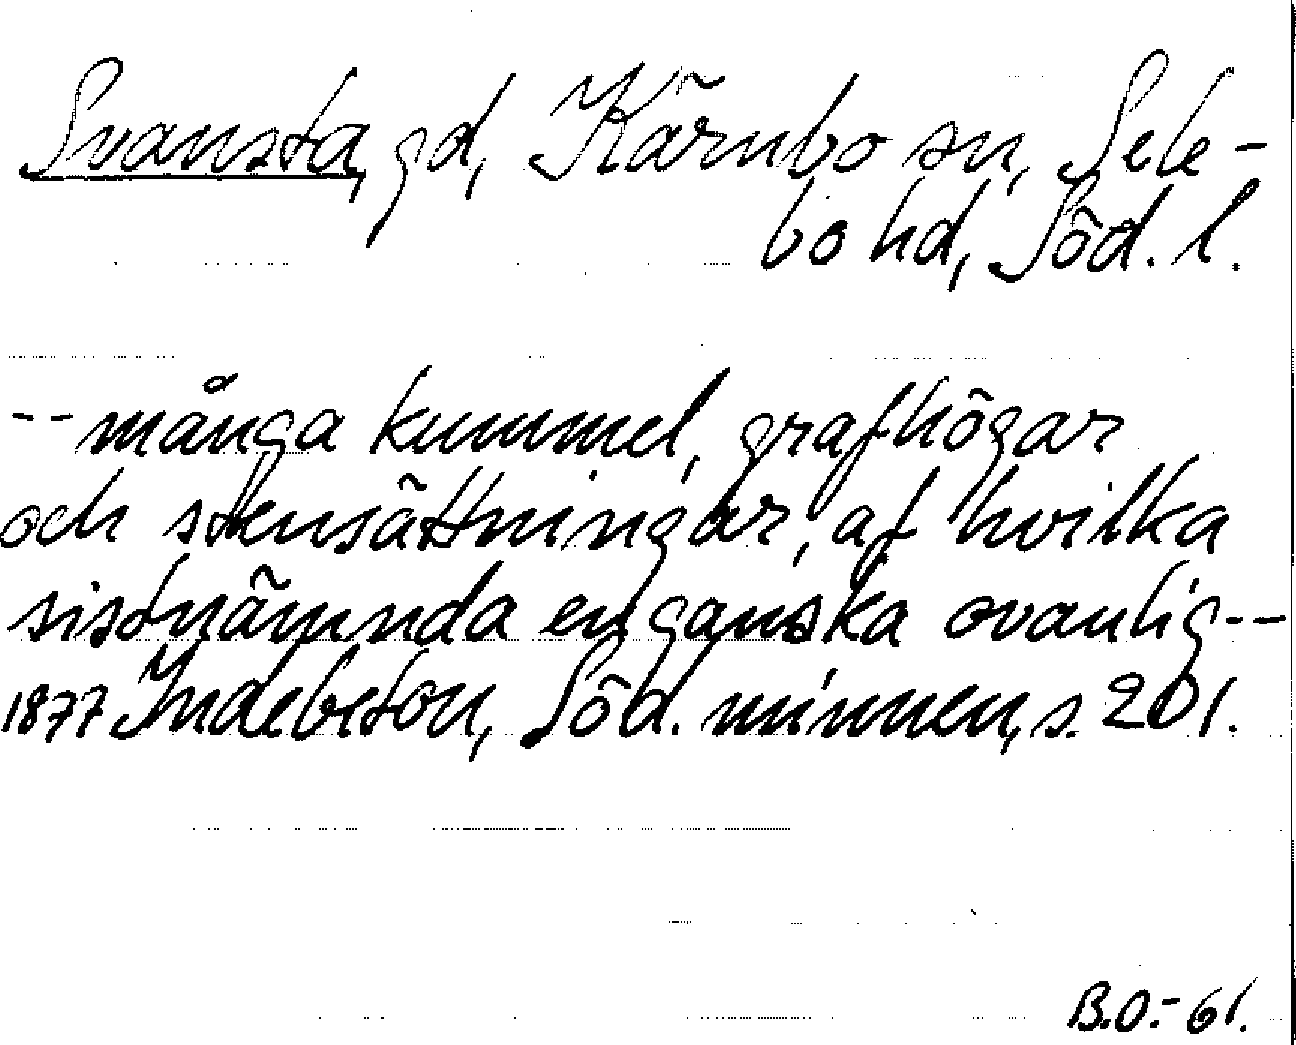 Svansta, gd, Kärnbo sn, Sele-
bo hd, Söd. l.
-- många kummel, grafhögar
och stensättningar, af hvilka
sistnämnda en ganska ovanlig --
1877 Indebetou, Söd. minnen, s. 201.
B.O.-61.